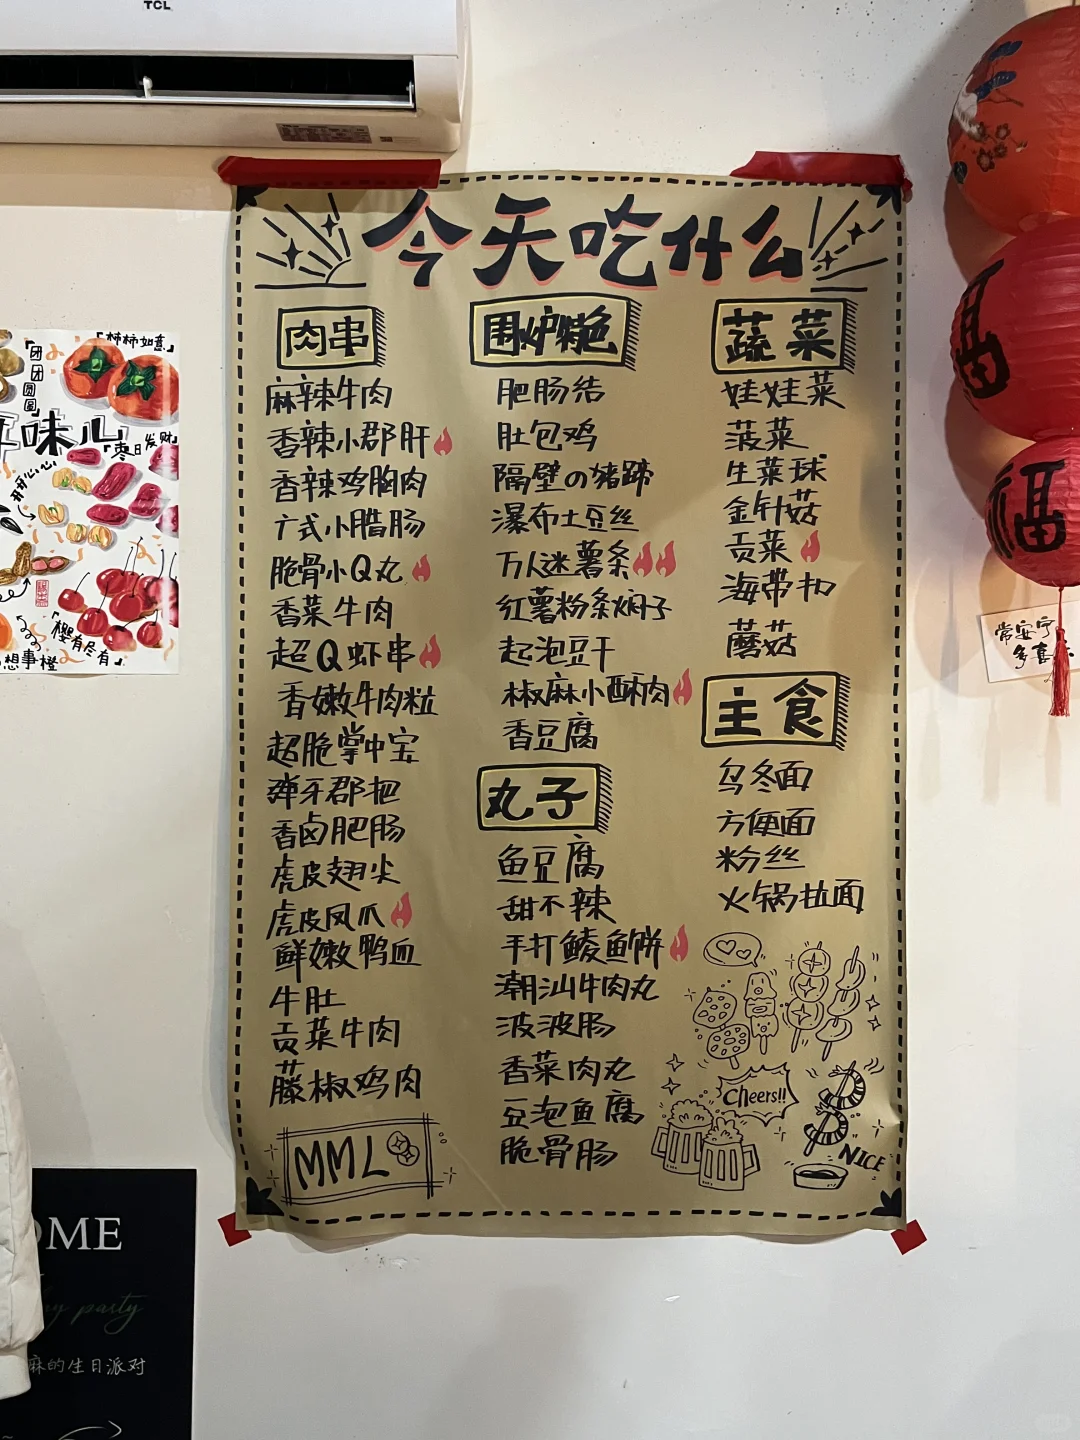 TCL
今天吃什么
肉串
麻辣牛肉
香辣小郡肝
香辣鸡胸肉
广式小腊肠
脆骨小Q丸
香菜牛肉
超Q虾串
香嫩牛肉粒
超脆掌中宝
弹牙郡把
香卤肥肠
虎皮翅尖
虎皮凤爪
鲜嫩鸭血
牛肚
贡菜牛肉
藤椒鸡肉
MML
围炉特色
肥肠结
肚包鸡
隔壁の猪蹄
瀑布土豆丝
万人迷薯条
红薯粉条焖子
起泡豆干
椒麻小酥肉
香豆腐
丸子
鱼豆腐
甜不辣
手打鲮鱼饼
潮汕牛肉丸
波波肠
香菜肉丸
豆泡鱼腐
脆骨肠
蔬菜
娃娃菜
菠菜
生菜球
金针菇
贡菜
海带扣
蘑菇
主食
乌冬面
方便面
粉丝
火锅拉面
Cheers!!
NICE
「柿柿如意」
「团团圆圆」
味儿
枣日发财」
开开心心
「樱有尽有」
想事橙
福
福
常安宁
多喜乐
OME
party
麻的生日派对